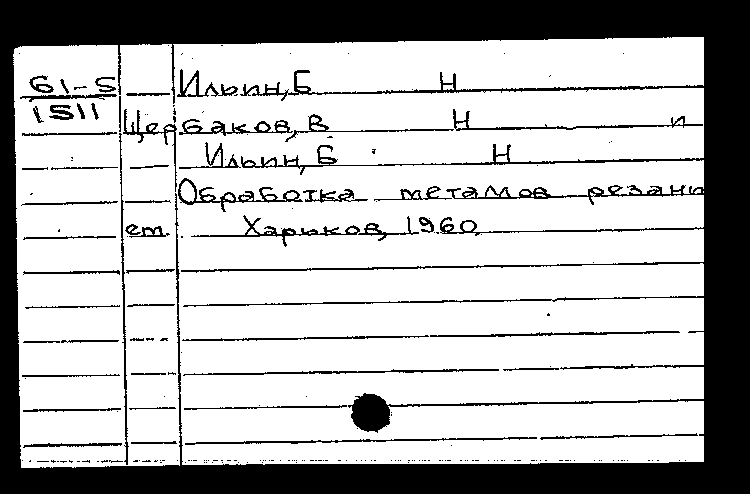 61-5 Ильин, Б Н
1511
Щербаков, В Н и
Ильин, Б Н
Обработка металлов резани
ет. Харьков, 1960